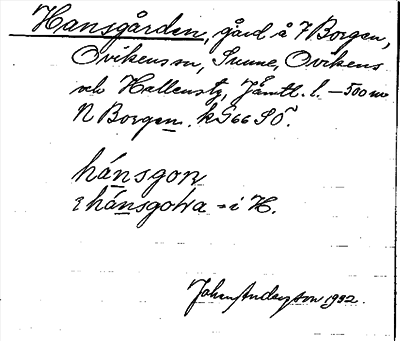 Hansgården, gård å N Borgen,
Ovikens sn, Sunne, Ovikens
och Hallens tg, Jämtl. l. – 500 m
N Borgen. k G 66 SÖ.
hánsgon
i hánsgoṅa = i H.
Johan Anderson 1932.